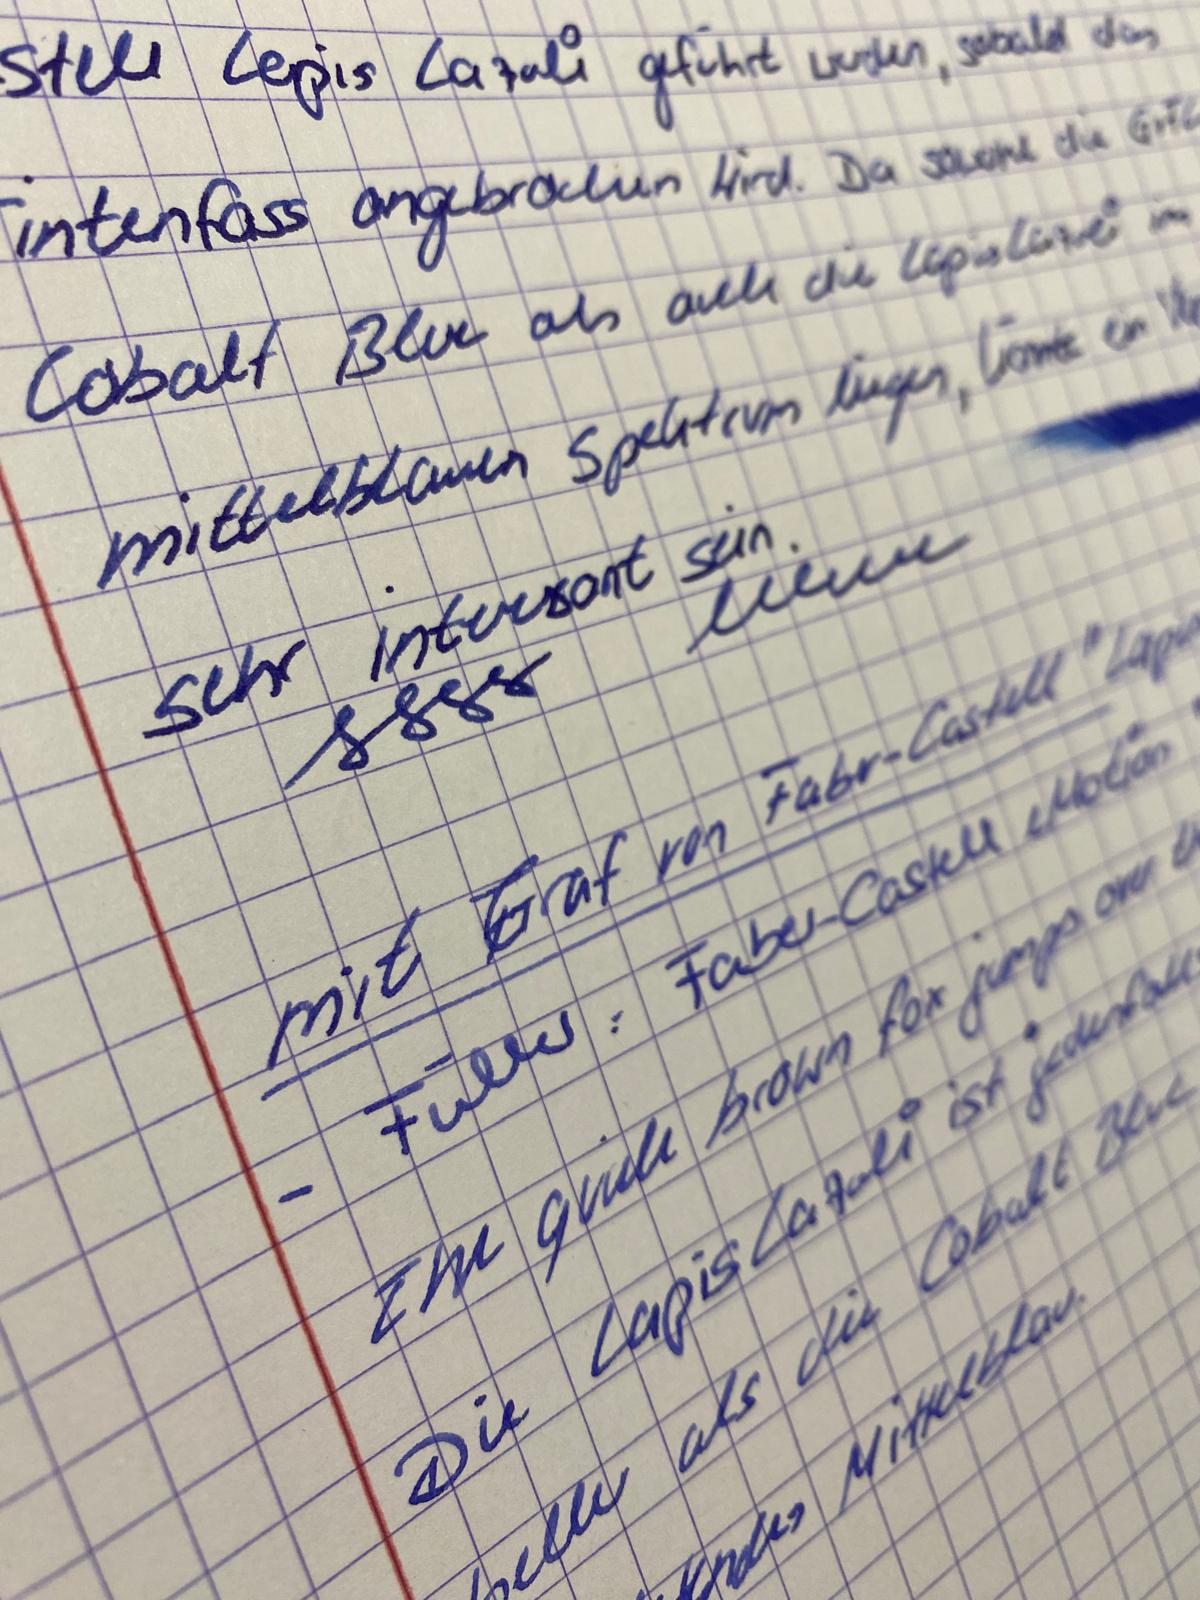 stell Lapis Lazuli geführt werden, sobald das
Tintenfass angebrochen wird. Da sowohl die
Cobalt Blue als auch die Lapis Lazuli im
mittelblauen Spektrum liegen, könnte ein
sehr interssant sein.
mit Graf von Faber-Castell "Lapis
- Füller: Faber-Castell eMotion
The quick brown fox jumps over
Die Lapis Lazuli ist jedenfalls
heller als die Cobalt Blue
Mittelblau.